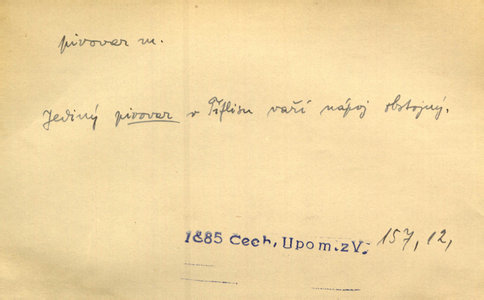 pivovar m.
Jediný pivovar v Tiflisu vaří nápoj obstojný.
1885 Čech, Upom. z V. 157, 12,